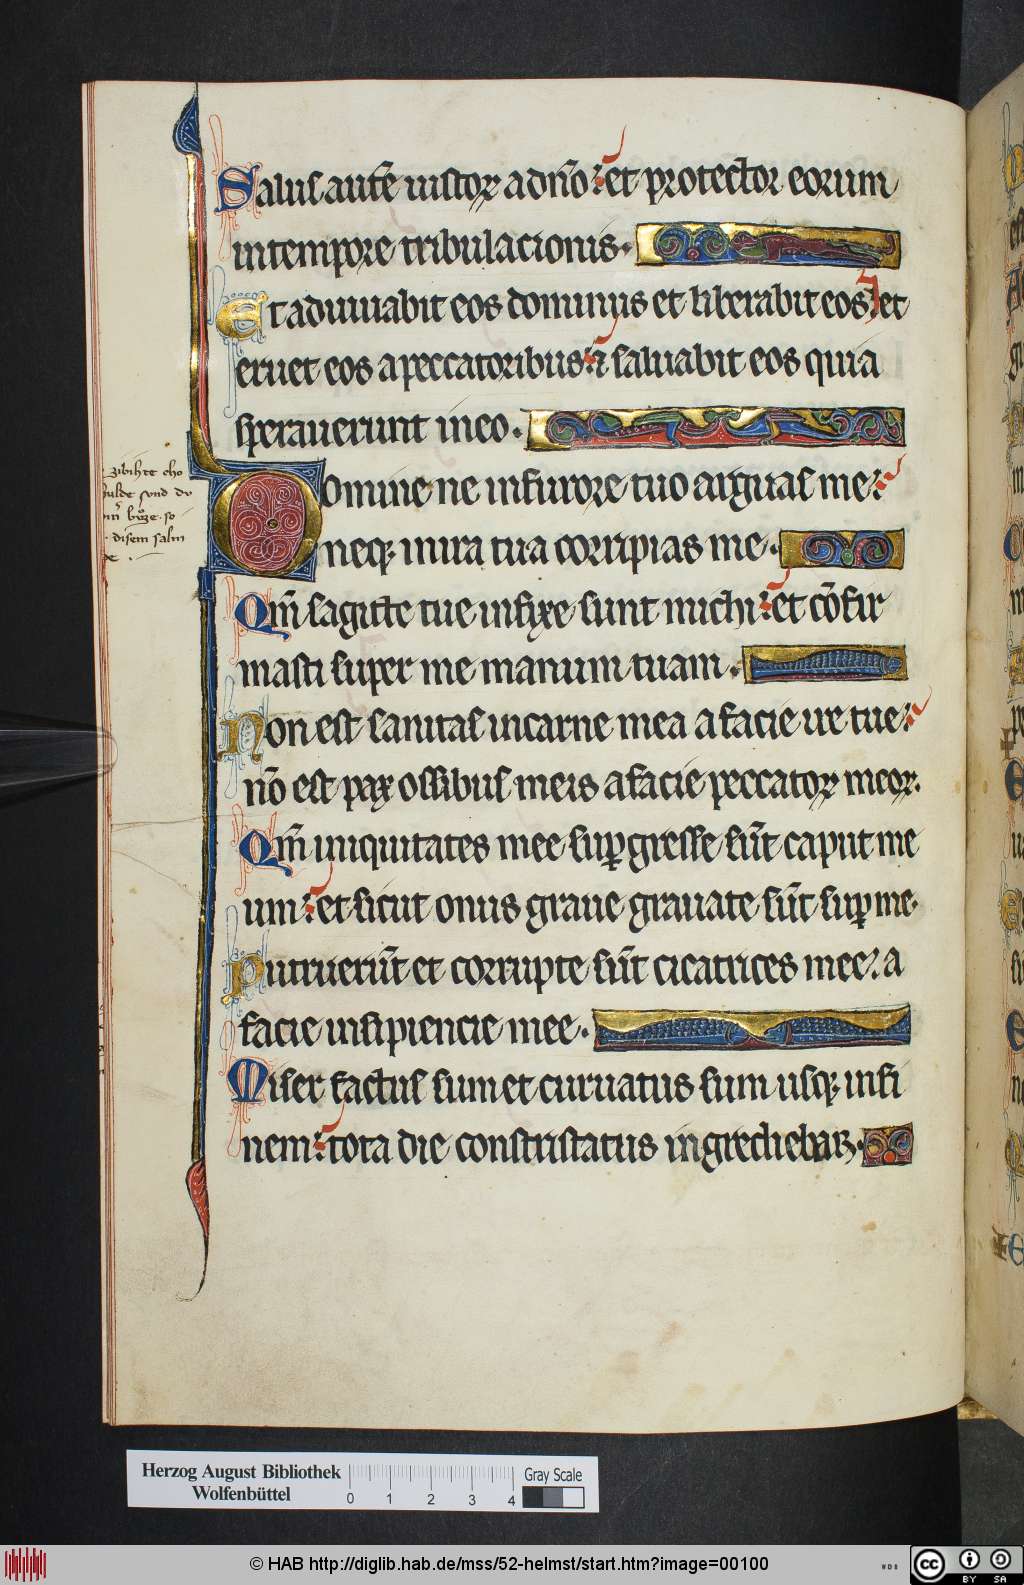 Salus aut̄e iustoꝝ a dn̄o : et protector eorum
in tempore tribulacionis .
Et adiuuabit eos dominus et liberabit eos : et
eruet eos a peccatoribus : ⁊ saluabit eos quia
sperauerunt in eo .
Domine ne in furore tuo arguas me :
neqꝫ in ira tua corripias me .
Qm̄ sagitte tue infixe sunt michi : et cōfir
masti super me manum tuam .
Non est sanitas in carne mea a facie ire tue :
nō est pax ossibus meis a facie peccatoꝝ meoꝝ .
Qm̄ iniquitates mee suꝑgresse sūt caput me
um : et sicut onus graue grauate sūt suꝑ me .
Putruerūt et corrupte sūt cicatrices mee : a
facie insipiencie mee .
Miser factus sum et curuatus sum usqꝫ in fi
nem : tota die constristatus ingrediebar .
disem salm
Herzog August Bibliothek
Wolfenbüttel
0 1 2 3 4
Gray Scale
© HAB http://diglib.hab.de/mss/52-helmst/start.htm?image=00100
WDB
cc BY SA